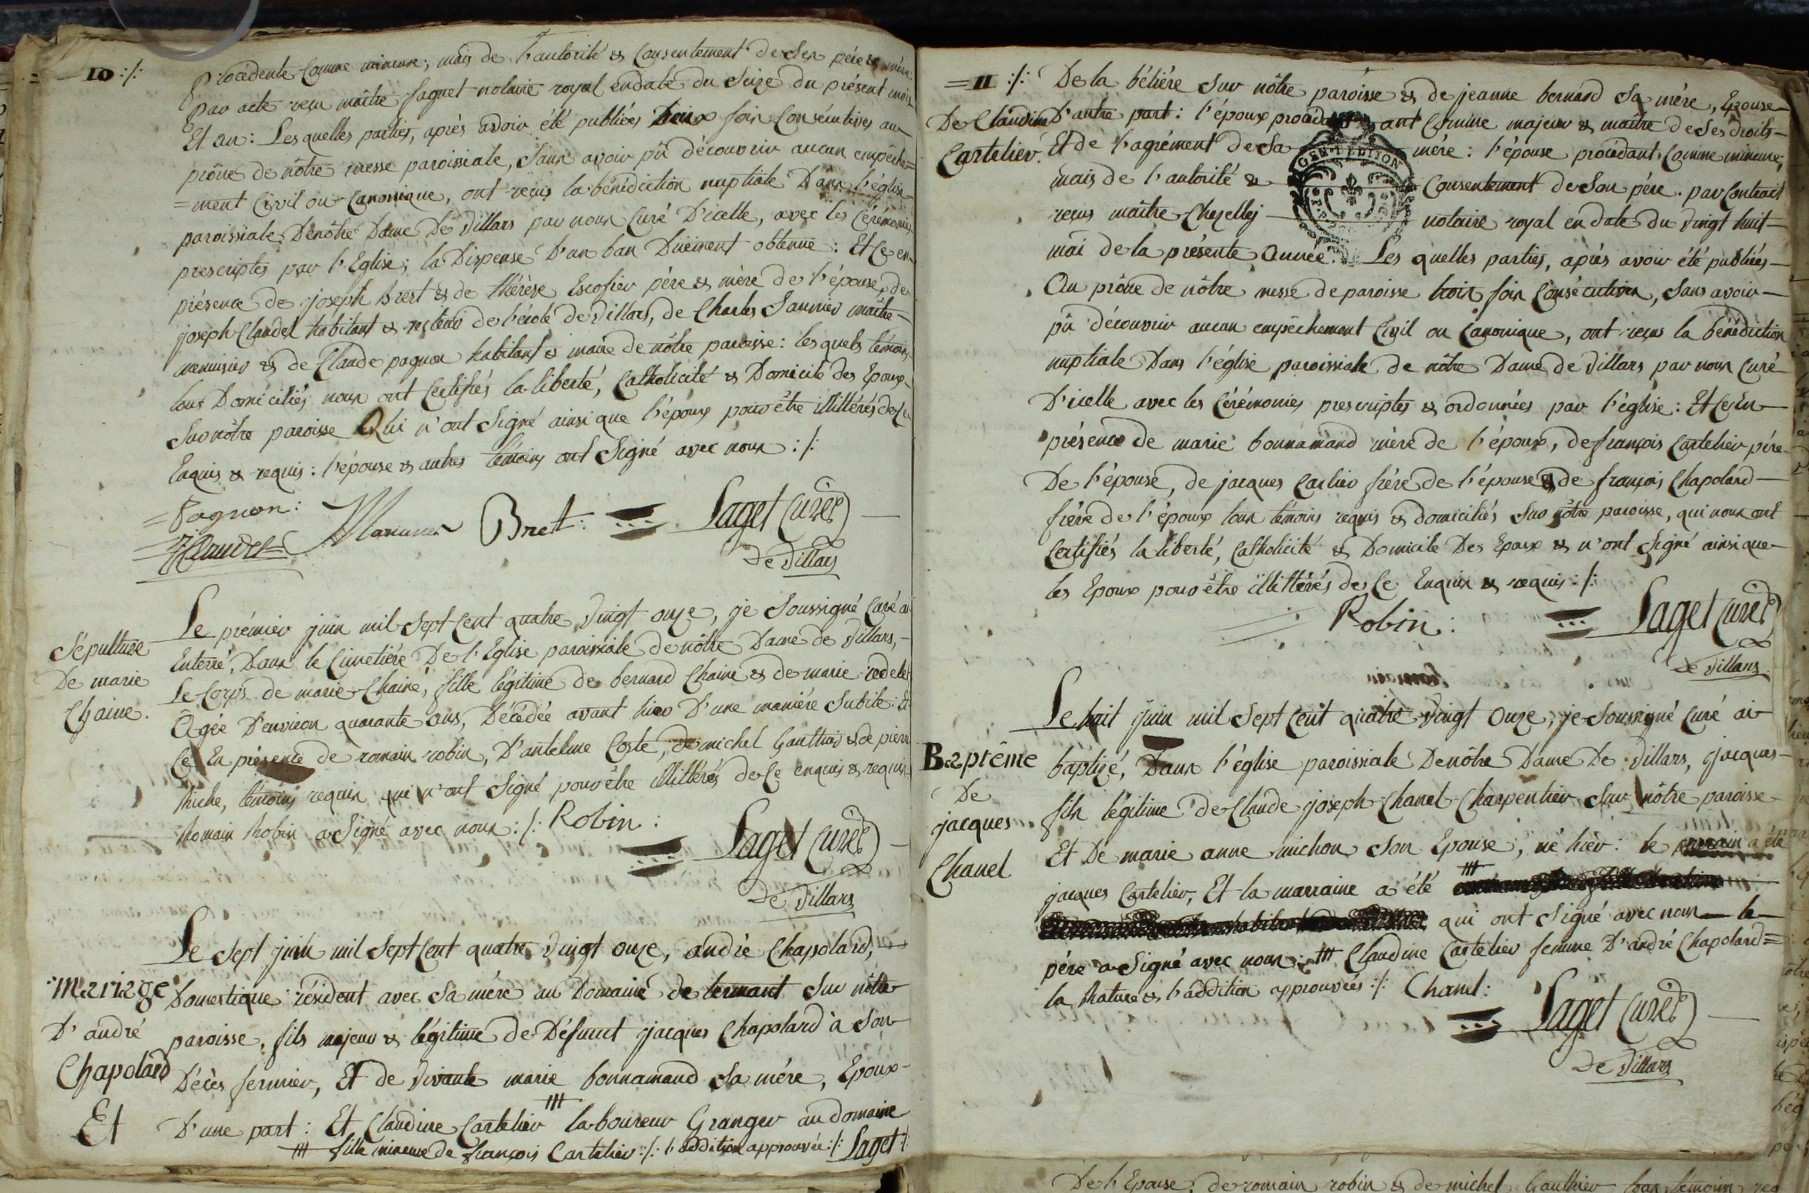 10 :/: procédente comme mineure, mais de l'autorité & consentement de ses père & mère
par acte reçu maître jaquet notaire royal en date du seize du présent mois
Et an : Les quelles parties, après avoir été publiées deux fois consécutives au
prône de nôtre messe paroissiale, sans avoir pû découvrir aucun empêche
=ment civil ou canonique, ont reçus la bénédiction nuptiale Dans l'église
paroissiale Denôtre Dame de Villars par nous curé D'icelle, avec les cérémonies
prescriptes par l'Eglise, la Dispense D'un ban Duëment obtenuë : Et ce en
présence de joseph bret & de thérèse Escofier père & mère de l'épouse, de
joseph Claudel habitant & recteur de l'école de Villars, de Charles Saunier maître
menuisier & de Claude pagnon habitant & maire de nôtre paroisse : les quels témoins
tous Domiciliés nous ont certifiés la liberté, catholicité & Domicile des Epoux
sur nôtre paroisse Qui n'ont signé ainsi que l'époux pour être illittérés de ce
Enquis & requis : l'épouse & autres témoins ont signé avec nous :/:
=Pagnon : Bret : Saget Curé
=Claudel de Villars
Le prémier juin mil sept cent quatre vingt onze, je soussigné curé ai
Sépulture
De marie
Chaine.
Enterré, Dans le Cimetière De l'Eglise paroissiale de nôtre Dame de Villars,
Le Corps de marie Chaine, fille légitime de bernard Chaine & de marie
Agée D'environ quarante ans, Décédée avant hier D'une manière subite. Et
Ce En présence de romain robin, D'antelme Coste, de michel Gauthier & de pierre
Miche, témoins requis qui n'ont signé pour être illittérés de ce enquis & requis
Romain Robin a signé avec nous :/: Robin :
Saget Curé
de Villars
Le sept juin mil sept cent quatre vingt onze, andré Chapolard,
Mariage
D'andré
Chapolard
Et
Domestique résident avec sa mère au Domaine de termant sur nôtre
paroisse, fils majeur & légitime de Défunct jacques Chapolard à son
Décès fermier, Et de vivante marie bonnamand sa mère, Epoux
D'une part : Et Claudine Cartelier laboureur Granger au domaine
fille mineure de françois Cartelier :/: l'addition approuvée :/: Saget
= 11 :/: De la bélière sur nôtre paroisse & de jeanne bernard sa mère, Epouse
De Claudine
Cartelier.
D'autre part : l'époux procédant comme majeur & maître de ses droits
Et de l'agrément de sa mère : l'épouse procédant comme mineure,
mais de l'autorité & consentement de son père. par contract
reçus maître Chezelles notaire royal en date du vingt huit
mai de la présente année. Les quelles parties, après avoir été publiées
Au prône de nôtre messe de paroisse trois fois consecutives, sans avoir
pû découvrir aucun empêchement civil ou canonique, ont reçus la bénédiction
nuptiale Dans l'église paroissiale de nôtre Dame de Villars par nous curé
D'icelle avec les cérémonies prescriptes & ordonnées par l'église : Et ce En
présence de marie bonnamand mère de l'époux, de françois Cartelier père
De l'épouse, de jacques Carlier frère de l'épouse & de françois Chapolard
frère de l'époux tous témoins requis & domiciliés sur nôtre paroisse, qui nous ont
certifiés la liberté, catholicité & Domicile Des Epoux & n'ont signé ainsi que
les Epoux pour être illittérés de ce Enquis & requis :/:
Robin : Saget Curé
de Villars
Le huit juin mil sept cent quatre vingt onze, je soussigné curé ai
Baptême
De
jacques
Chanel
baptizé, Dans l'église paroissiale Denôtre Dame De Villars, jacques
fils légitime de Claude joseph Chanel Charpentier sur nôtre paroisse
Et De marie anne michon son Epouse, né hièr : le parrain a été
jacques Cartelier, Et la marraine a été
qui ont signé avec nous le
père a signé avec nous : Claudine Cartelier femme D'andré Chapolard=
la rature & l'addition approuvées :/: Chanel :
Saget Curé
de Villars
De l'Epouse, de romain robin & de michel Gauthier tous témoins